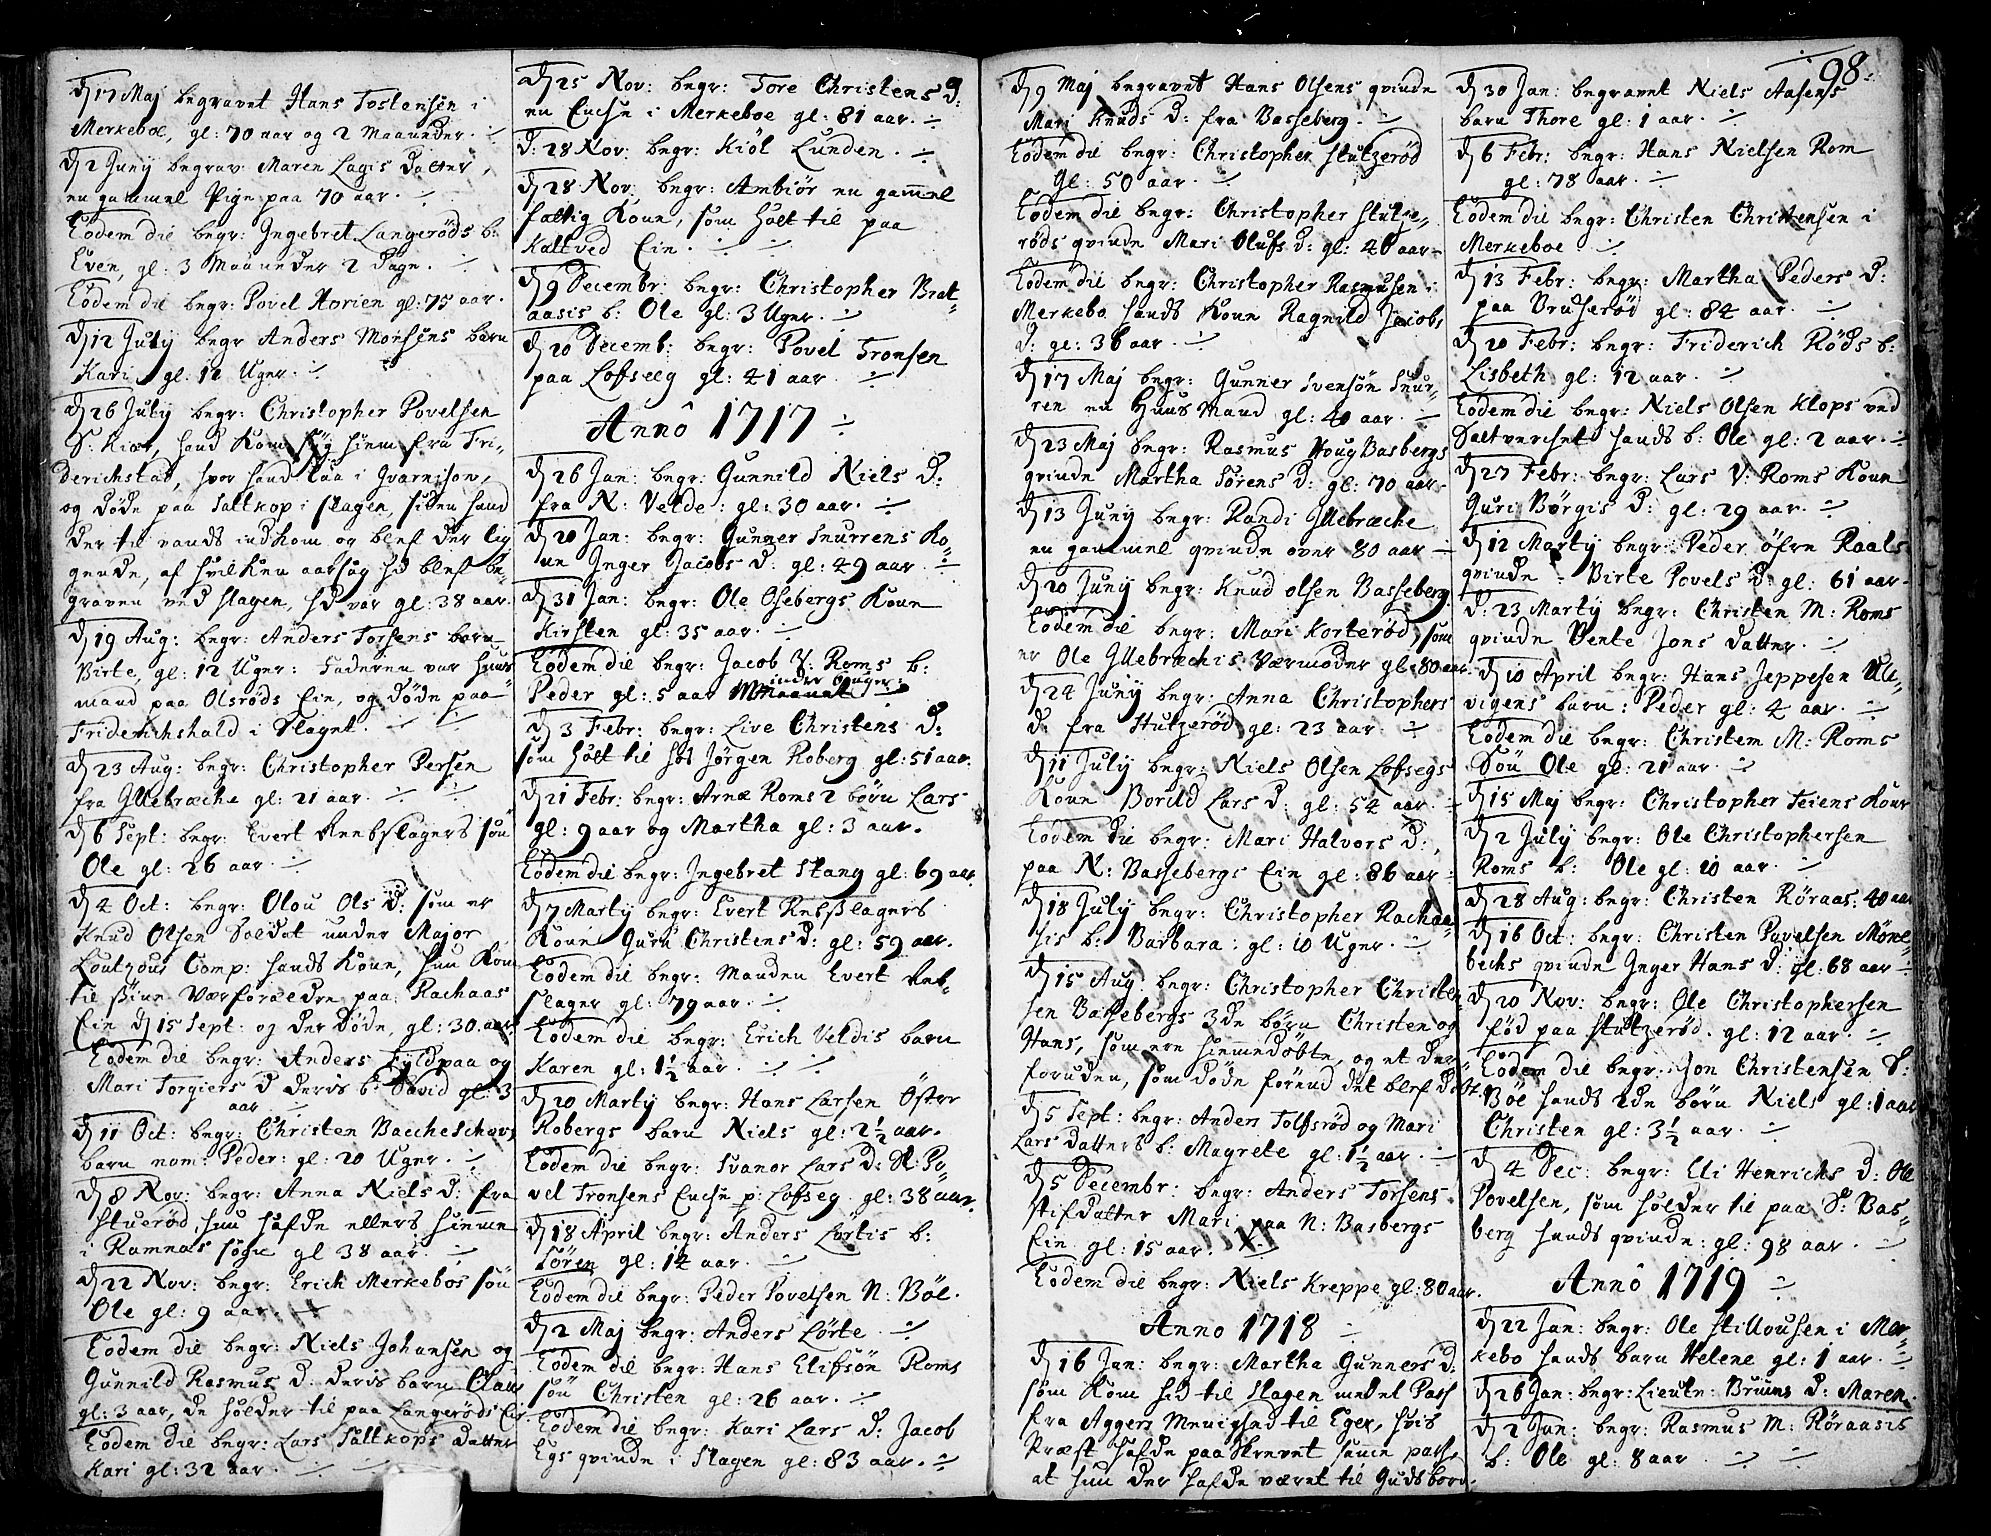 d 17 Maj begravet Hans Tostensen i
Merkeboe, gl: 70 aar og 2 Maaneder.
d 2 Juny begrav: Maren Lagis datter,
en gammel Pige paa 70 aar.
Eodem die begr: Ingebret Langerøds b:
Even, gl: 3 Maaneder 2 dage.
Eodem die begr: Povel Horien gl: 75 aar.
d 12 July begr Anders Monsens barn
Kari gl: 12 Uger.
d 26 July begr: Christopher Povelsen
S: Kier, hand kom siug hiem fra Fri-
derichstad, hvor hand laa i Gvarnison,
og døde paa Saltkop i Slagen, siden hand
der til vands indkom og blef der lig
gende, af hvilken aarsag hd blef be-
graven ved Slagen, hd var gl: 38 aar.
d 19 Aug: begr: Anders Torsens barn
Birte, gl: 12 Uger: Faderen var huus
mand paa Olsrøds Eie, og døde paa
Friderichshald i Slaget.
d 23 Aug: begr: Christopher Persen
fra Gllebræche gl: 21 aar.
d 6 Sept: begr: Evert Reebslagers søn
Ole gl: 26 aar
d 4 Oct: begr: Olou Ols d: som er
Knud Olsen Soldat under Major
Comp: hands kone, hun kom
til sine Værforældre paa Rachaas
Eie d 15 Sept: og der døde, gl: 30 aar
Eodem die begr: Anders Fyldpaa og
Mari Torgiers d deris b: David gl: 3
aar
d 11 Oct: begr: Christen Baccheschous
barn nom: Peder: gl: 20 Uger.
d 8 Nov: begr: Anna Niels d: fra
Stuerød hun hafde ellers hiemme
i Ramnæs sogn gl 38 aar.
d 22 Nov: begr: Erich Merkebos søn
Ole gl: 9 aar.
Eodem die begr: Niels Johansen og
Gunnild Rasmus d. deris barn Claus
gl: 3 aar, de holder til paa Langerøds Eie
Eodem die begr: Lars Saltkops datter
Kari gl: 32 aar.
d 25 Nov: begr: Tore Christens d:
en Enche i Merkeboe gl: 81 aar.
d: 28 Nov: begr: Kiøl Lunden.
d 28 Nov: begr: Ambiør en gammel
fattig kone, som holt til paa
Kaltved Eie.
d 9 Decembr: begr: Christopher Brat-
aasis b: Ole gl: 3 Uger.
d 20 Decemb: begr: Povel Tronsen
paa Lofseeg gl: 41 aar.
Anno 1717
d 26 Jan: begr: Gunnild Niels d:
fra N: Velde: gl: 30 aar.
d 20 Jan: begr: Gunner Snurrens Ko-
ne Inger Jacobs d: gl: 49 aar.
d 31 Jan: begr: Ole Osebergs Kone
Kirsten gl: 35 aar.
Eodem die begr: Jacob Y: Roms b:
Peder gl: 5 aar
d 3 Febr: begr: Live Christens d:
som holt til hos Jørgen Roberg gl: 51 aar.
d 21 Febr: begr: Arne Roms 2 børn Lars
gl: 9 aar og Martha gl: 3 aar.
Eodem die begr: Ingebret Stang gl: 69 aar.
d 7 Marty begr: Evert Rebslagers
Kone Guru Christens d: gl: 59 aar.
Eodem die begr: Manden Evert Reb-
slager gl: 79 aar.
Eodem die begr: Erich Veldis barn
Karen gl: 1½ aar.
d 20 Marty begr: Hans Larsen Østre
Robergs barn Niels gl: 2½ aar.
Eodem die begr: Svanor Lars d: Sl: Po-
vel Tronsens Enche p: Lofseg gl: 38 aar.
d 18 April begr: Anders Lørtis b:
Søren gl: 14 aar.
Eodem die begr: Peder Povelsen N: Bøl.
d 2 Maj begr: Anders Lørte.
Eodem die begr: Hans Elifsøn Roms
søn Christen gl: 26 aar.
Eodem die begr: Kari Lars d: Jacob
Egs qvinde i Slagen gl: 83 aar.
98.
d 9 Maj begravet Hans Olsens qvinde
Mari Knuds d: fra Basseberg.
Eodem die begr: Christopher Stutzerød
gl: 50 aar.
Eodem die begr: Christopher Stutze-
røds qvinde Mari Olufs d: gl: 46 aar
Eodem die begr: Christopher Rasmusen i
Merkebo hands Kone Ragnild Jacobs
d: gl: 36 aar.
d 17 Maj begr: Gunner Svensøn Snur-
ren en Huusmand gl: 40 aar.
d 23 Maj begr: Rasmus Houg Basbergs
qvinde Martha Sørens d: gl: 70 aar
d 13 Juny begr: Randi Gllebræche
en gammel qvinde over 80 aar
d 20 Juny begr: Knud Olsen Basseberg.
Eodem die begr: Mari Korterød, som
er Ole Gllebræchis Værmoder gl: 80 aar.
d 24 Juny begr: Anna Christophers
d. fra Stutzerød gl: 23 aar
d 11 July begr: Niels Olsen Lofsegs
Kone Borild Lars d: gl: 54 aar.
Eodem die begr: Mari Halvors d:,
paa N: Bassebergs Eie gl: 86 aar
d 18 July begr: Christopher Rachaa-
sis b: Barbara: gl: 10 Uger.
d 15 Aug: begr: Christopher Christen-
sen Bassebergs 3de børn Christen og
Hans, som ere hiemmedøbte, og et der-
foruden, som døde førend det blef døbt.
d 5 Sept: begr: Anders Tolfsrød og Mari
Lars datters b: Magrete gl: 1½ aar.
d 5 Decembr: begr: Anders Torsens
Stifdatter Mari paa N: Basbergs
Eie gl: 15 aar.
Eodem die begr: Niels Kreppe gl: 80 aar.
Anno 1718
d 16 Jan: begr: Martha Gunners d.
som kom hid til Slagen med et Pass
fra Aggers Menighed til Eger, hvis
Præst hafde paaskrevet samme pass,
at hun der hafde været til Guds bord.
d 30 Jan: begravet Niels Aasens
barn Thore gl: 1 aar.
d 6 Febr: begr: Hans Nielsen Rom
gl: 78 aar.
Eodem die begr: Christen Christensen i
Merkeboe
d 13 Febr: begr: Martha Peders d:
paa Bruserød gl: 84 aar.
d 20 Febr: begr: Friderich Røds b:
Lisbeth gl: 12 aar.
Eodem die begr: Niels Olsen Klops ved
Saltverchet hands b: Ole gl: 2 aar.
d 27 Febr: begr: Lars V: Roms Kone
Guri Børgis d: gl: 29 aar.
d 12 Marty begr: Peder øfre Raals
qvinde Birte Povels d: gl: 61 aar.
d: 23 Marty begr: Christen M: Roms
qvinde Bente Jons datter.
d 10 April begr: Hans Jeppesen Ule-
vigens barn: Peder gl: 4 aar.
Eodem die begr: Christem M: Roms
Søn Ole gl: 21 aar.
d 15 Maj begr: Christopher Teiens Kone
d 2 July begr: Ole Christophersen
Roms b: Ole gl: 10 aar.
d 28 Aug: begr: Christen Røraas: 40 aar
d 16 Oct: begr: Christen Povelsen Møne-
bechs qvinde Inger Hans d: gl: 68 aar
d 20 Nov: begr: Ole Christophersen
fød paa Stutzerød. gl: 12 aar.
Eodem die begr: Jon Christensen S:
Bøe hands 2de børn Niels gl: 1 aar
Christen gl: 3½ aar.
d 4 Dec: begr: Eli Henrichs d: Ole
Povelsen, som holder til paa S: Bas-
berg hands qvinde: gl: 98 aar.
Anno 1719
d 22 Jan: begr: Ole Stillousen i Mer-
kebo hands barn Helene gl: 1 aar.
d 26 Jan: begr: Lieutn: Bruuns d: Maren.
d 2 Jan: begr: Rasmus M: Røraasis
b: Ole gl: 8 aar